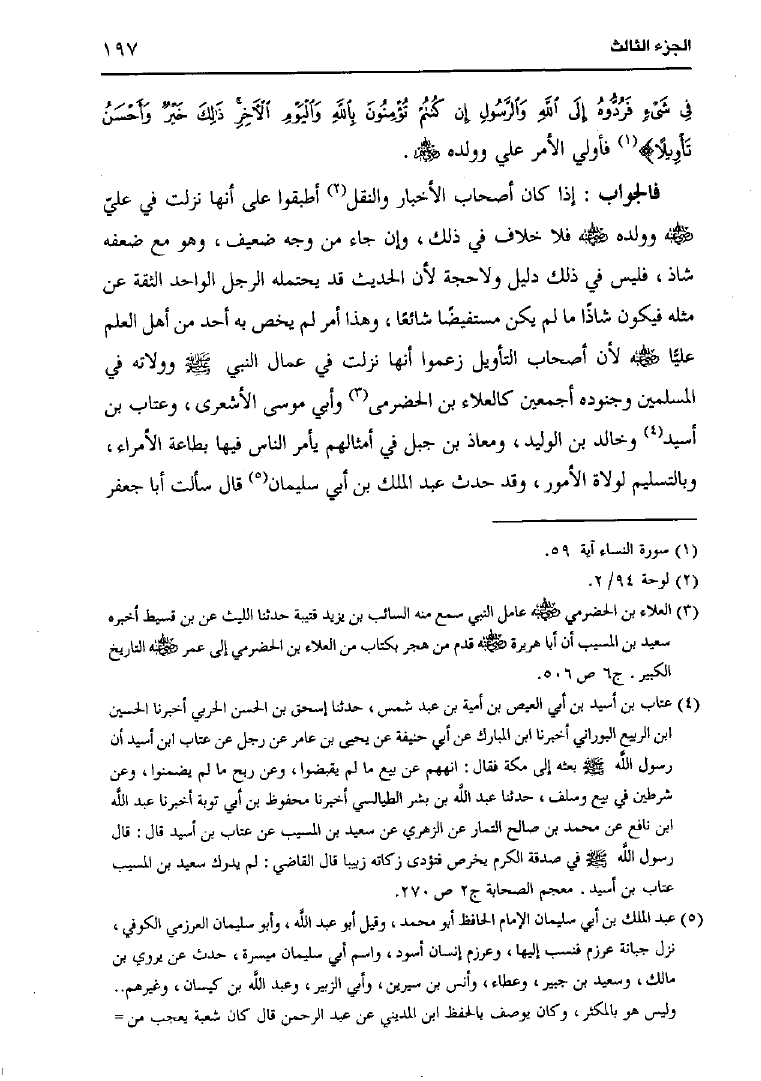 الجزء الثالث ١٩٧
فِي شَيْءٍ فَرُدُّوهُ إِلَى اللَّهِ وَالرَّسُولِ إِن كُنتُمْ تُؤْمِنُونَ بِاللَّهِ وَالْيَوْمِ الْآخِرِ ذَٰلِكَ خَيْرٌ وَأَحْسَنُ
تَأْوِيلًا﴾(١) فأولي الأمر علي وولده رضي الله عنهم .
فالجواب : إذا كان أصحاب الأخبار والنقل(٢) أطبقوا على أنها نزلت في عليّ
رضي الله عنه وولده رضي الله عنهم فلا خلاف في ذلك ، وإن جاء من وجه ضعيف ، وهو مع ضعفه
شاذ ، فليس في ذلك دليل ولاحجة لأن الحديث قد يحتمله الرجل الواحد الثقة عن
مثله فيكون شاذًا ما لم يكن مستفيضًا شائعًا ، وهذا أمر لم يخص به أحد من أهل العلم
عليًا رضي الله عنه لأن أصحاب التأويل زعموا أنها نزلت في عمال النبي ﷺ وولاته في
المسلمين وجنوده أجمعين كالعلاء بن الحضرمى(٣) وأبي موسى الأشعرى ، وعتاب بن
أسيد(٤) وخالد بن الوليد ، ومعاذ بن جبل في أمثالهم يأمر الناس فيها بطاعة الأمراء ،
وبالتسليم لولاة الأمور ، وقد حدث عبد الملك بن أبي سليمان(٥) قال سألت أبا جعفر
(١) سورة النساء آية ٥٩.
(٢) لوحة ٩٤ /٢.
(٣) العلاء بن الحضرمي رضي الله عنه عامل النبي سمع منه السائب بن يزيد قتيبة حدثنا الليث عن بن قسيط أخبره
سعيد بن المسيب أن أبا هريرة رضي الله عنه قدم من هجر بكتاب من العلاء بن الحضرمي إلى عمر رضي الله عنه التاريخ
الكبير . ج٦ ص ٥٠٦.
(٤) عتاب بن أسيد بن أبي العيص بن أمية بن عبد شمس ، حدثنا إسحق بن الحسن الحربي أخبرنا الحسين
ابن الربيع البوراني أخبرنا ابن المبارك عن أبي حنيفة عن يحيى بن عامر عن رجل عن عتاب ابن أسيد أن
رسول اللَّه ﷺ بعثه إلى مكة فقال : انههم عن بيع ما لم يقبضوا ، وعن ربح ما لم يضمنوا ، وعن
شرطين في بيع وسلف ، حدثنا عبد اللَّه بن بشر الطيالسي أخبرنا محفوظ بن أبي توبة أخبرنا عبد اللَّه
ابن نافع عن محمد بن صالح التمار عن الزهري عن سعيد بن المسيب عن عتاب بن أسيد قال : قال
رسول اللَّه ﷺ في صدقة الكرم يخرص فتؤدى زكاته زبيبا قال القاضي : لم يدرك سعيد بن المسيب
عتاب بن أسيد . معجم الصحابة ج٢ ص ٢٧٠.
(٥) عبد الملك بن أبي سليمان الإمام الحافظ أبو محمد ، وقيل أبو عبد اللَّه ، وأبو سليمان العرزمي الكوفي ،
نزل جبانة عرزم فنسب إليها ، وعرزم إنسان أسود ، واسم أبي سليمان ميسرة ، حدث عن يروي بن
مالك ، وسعيد بن جبير ، وعطاء ، وأنس بن سيرين ، وأبي الزبير ، وعبد اللَّه بن كيسان ، وغيرهم..
وليس هو بالمكثر ، وكان يوصف بالحفظ ابن المديني عن عبد الرحمن قال كان شعبة يعجب من =